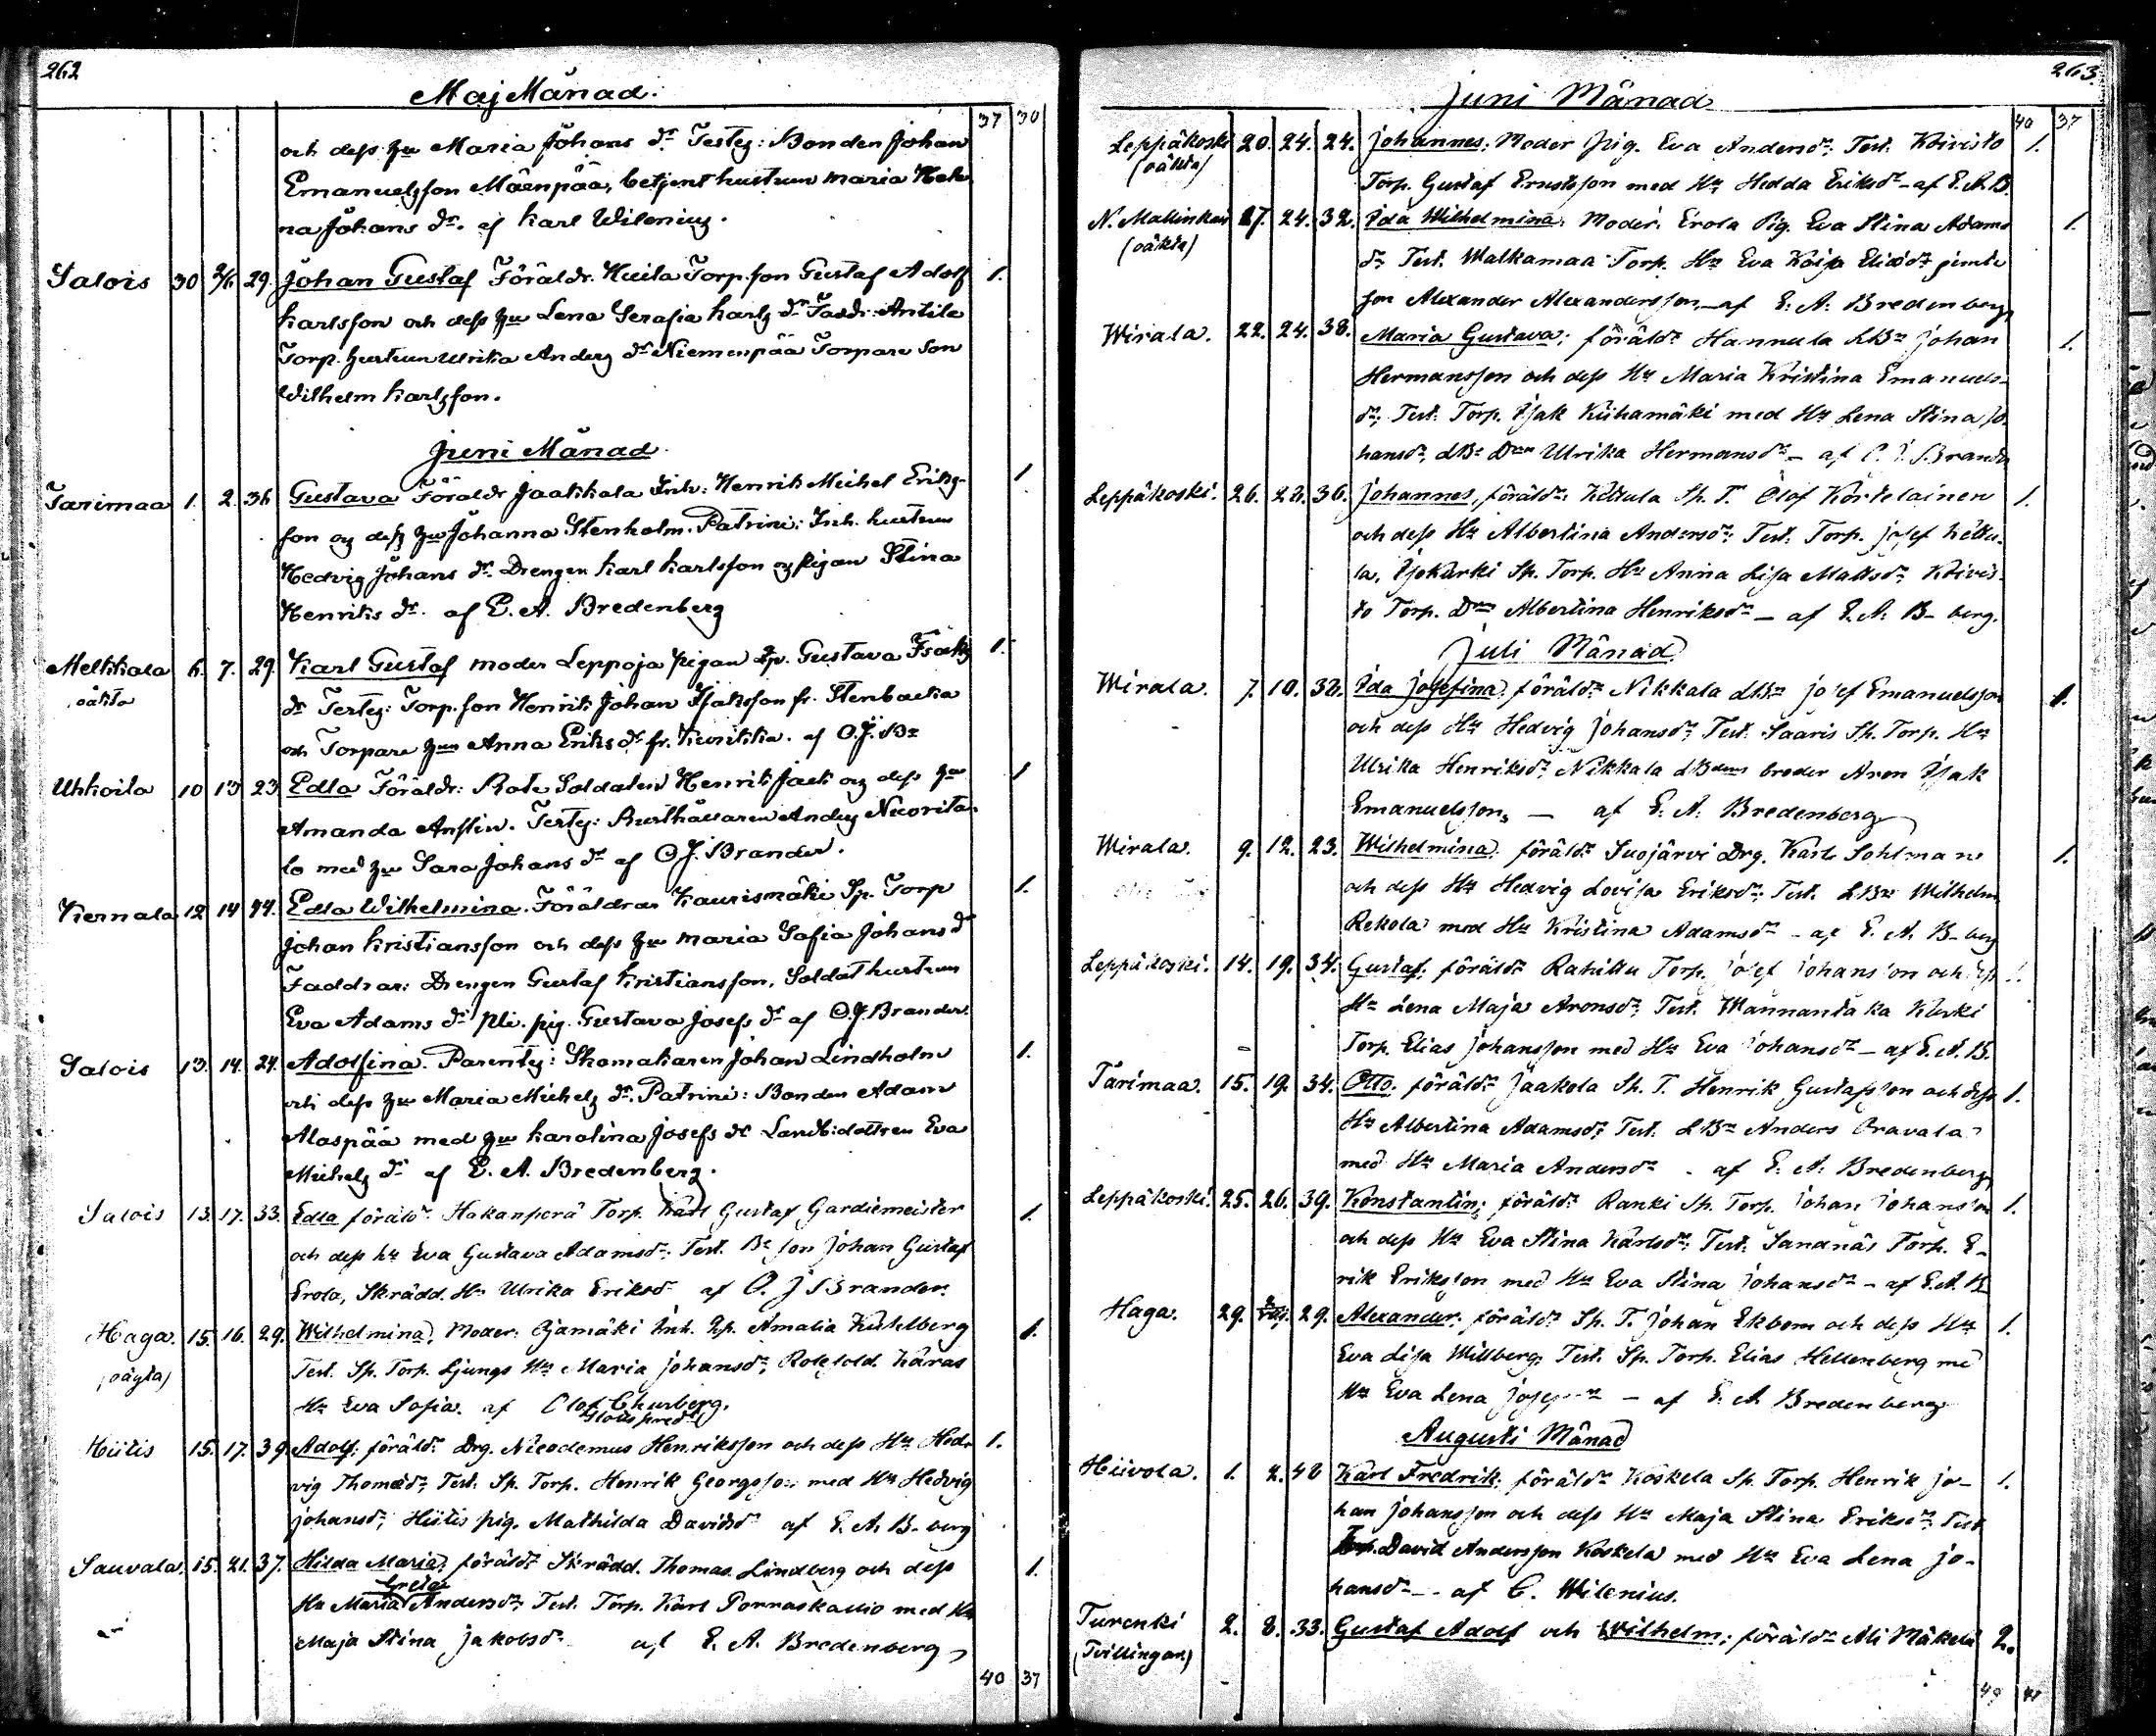 262
Maj Månad.
37 30
och dess hu Maria Johans dr Testes: Bonden Johan
Emanuelsson Mäenpää, betjent hustrun Maria Hele
na Johans dr. af Karl Wilenius.
Salois 30 2/6. 29. Johan Gustaf Föräldr. Torp. son Gustaf Adolf 1.
Karlsson och dess hu Lena Serafia Karls dr Faddr. Antila
Torp. hustrun Ulrika Anders dr Niemenpää Torpare Son
Wilhelm Karlsson.
Juni Månad.
Tarimaa 1. 2. 36 Gustava Föräldr Jaakkala Inh: Henrik Michel Eriks- 1
son og dess hu Johanna Stenholm. Patrini: Inh. hustrun
Hedvig Johans dr. Drengen Karl Karlsson og pigan Stina
Henriks dr. af E. A. Bredenberg
Melkkala 6. 7. 29. Karl Gustaf moder Leppoja pigan Gustava Isaks 1.
oäkta dr Testes: Torp. son Henrik Johan Isaksson fr. Stenbacka
och Torpare hun Anna Eriks dr fr. af O. J. Br
Uhkoila 10 13 23 Edla Föräldr: Rote Soldaten Henrik Jack og dess hu 1
Amanda Testes: Anders Nuorita-
lo med hu Sara Johans dr af O J. Brander.
Kernala 12 14 44. Edla Wilhelmina. Föräldrar Kaurismäki Sp. Torp 1.
Johan Kristiansson och dess hu Maria Sofia Johans dr
Faddrar: Drengen Gustaf Kristiansson, Soldat hustrun
Eva Adams dr pig. Gustava Josefs dr af O. J. Brander.
Salois 13. 14. 24. Adolfina. Parentes: Skomakaren Johan Lindholm 1.
och dess hu Maria Michels dr. Patrini: Bonden Adam
Alaspää med hu Karolina Josefs dr Landb: dottren Eva
Michels dr af E. A. Bredenberg.
Salois 13. 17. 33. Edla föräldr. Hakanperä Torp. Karl Gustaf Gardiemeister 1.
och dess hu Eva Gustava Adamsdr; Test. Br son Johan Gustaf
Erola, Skrädd. Hu Ulrika Eriksdr af O. J Brander.
Haga. 15. 16. 29. Wilhelmina; Moder: Ojamäki Inh. Amalia Kuhlberg 1.
(oägta) Test. Sp. Torp. Ljungs Hu Maria Johansdr; Rotesold. Käras
Hu Eva Sofia. af Olof Churberg.
Hiitis 15. 17. 39. Adolf; föräldr. Drg. Nicodemus Henriksson och dess Hu Hed- 1.
vig Thomædr; Test. Sp. Torp. Henrik Georgsson med Hu Hedvig
Johansdr; Hiitis pig. Mathilda Davidsdr af E. A. B-berg
Sauvala. 15. 21. 37. Hilda Maria; föräldr Skrädd. Thomas Lindberg och dess 1.
Greta
Hu Maria Andersdr; Test. Torp. Karl Porraskallio med Hu
Maja Stina Jakobsdr af E. A. Bredenberg
40 37
263
Juni Månad
40 37
Leppäkoski 20. 24. 24. Johannes; Moder Pig. Eva Andersdr; Test. Koivisto 1.
(oäkta) Torp. Gustaf Ernstsson med Hu Hedda Eriksdr - af E. A. B.
N. Mallinkais 17. 24. 32. Ida Wilhelmina; Moder. Erola Pig. Eva Stina Adams 1.
(oäkta) dr; Test. Walkamaa Torp. Hu Eva Kaisa Eliædr jemte
son Alexander Alexandersson, - af E. A. Bredenberg
Wirala. 22. 24. 38. Maria Gustava; föräldr Hannula LBn Johan 1.
Hermansson och dess Hu Maria Kristina Emanuels-
dr; Test. Torp. Isak Kiihamäki med Hu Lena Stina Jo-
hansdr, LBn Dtren Ulrika Hermansdr - af O. J. Brander
Leppäkoski. 26. 28. 36. Johannes, föräldr: Kettula Sp. T. Olof Kortelainen 1.
och dess Hu Albertina Andersdr; Test. Torp. Josef Kettu-
la, Isokärki Sp. Torp. Hu Anna Lisa Mattsdr, Koivis-
to Torp. Dtren Albertina Henriksdr - af E. A. B-berg.
Juli Månad
Wirala. 7. 10. 32. Ida Josefina; föräldr Nikkala LBn Josef Emanuelsson 1.
och dess Hu Hedvig Johansdr; Test. Saaris Sp. Torp. Hu
Ulrika Henriksdr, Nikkala LBdens broder Aron Isak
Emanuelsson, - af E. A. Bredenberg
Wirala. 9. 12. 23. Wilhelmina; föräldr Suojärvi Drg. Karl Sohlman 1.
och dess Hu Hedvig Lovisa Eriksdr; Test. LBn Wilhelm
Rekola med Hu Kristina Adamsdr - af E. A. B-berg
Leppäkoski. 14. 19. 34. Gustaf; föräldr Rahittu Torp. Josef Johansson och dess 1.
Hu Lena Maja Aronsdr; Test. Wannantaka Kurki
Torp. Elias Johansson med Hu Eva Johansdr - af E. A. B.
Tarimaa. 15. 19. 34. Otto. föräldr Jaakola Sp. T. Henrik Gustafsson och dess 1.
Hu Albertina Adamsdr; Test. LBn Anders Oravala
med Hu Maria Andersdr - af E. A. Bredenberg
Leppäkoski. 25. 26. 39. Konstantin; föräldr Ranki Sp. Torp. Johan Johansson 1.
och dess Hu Eva Stina Karlsdr; Test. Sandnäs Torp. E-
rik Eriksson med Hu Eva Stina Johansdr - af E. A. B
Haga. 29. 29. Alexander; föräldr Sp. T. Johan Ekbom och dess Hu 1.
Eva Lisa Willberg; Test. Sp. Torp. Elias Hellenberg med
Hu Eva Lena - af E. A Bredenberg
Augusti Månad
Hiivola. 1. 2. 42 Karl Fredrik; föräldr Koskela Sp. Torp. Henrik Jo- 1.
han Johansson och dess Hu Maja Stina Eriksdr; Test
Torp. David Andersson Koskela med Hu Eva Lena Jo-
hansdr - af C. Wilenius.
Turenki 2. 8. 33. Gustaf Adolf och Wilhelm; föräldr Ali Mäkelä 2.
(Tvillingar)
49 41